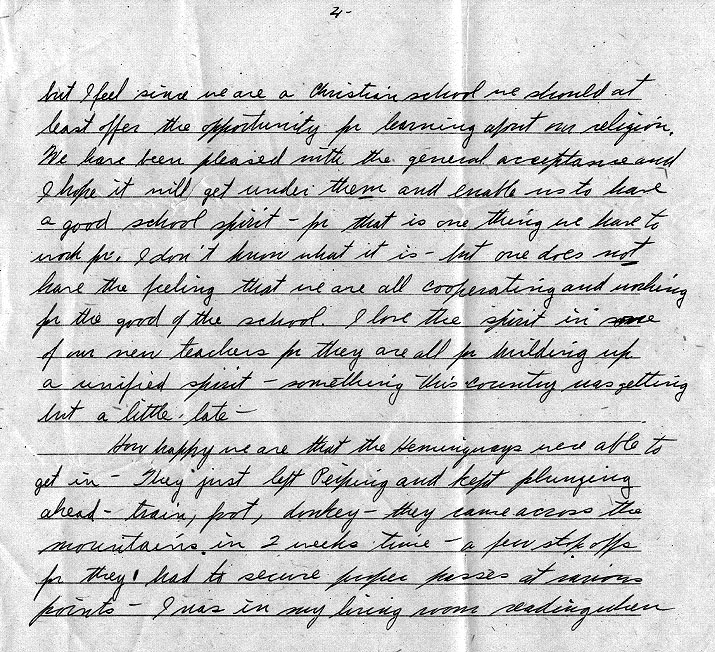 4-
but I feel since we are a Christian school we should at
least offer the opportunity for learning about our religion.
We have been pleased with the general acceptance and
I hope it will get under them and enable us to have
a good school spirit - for that is one thing we have to
work for. I don't know what it is - but one does not
have the feeling that we are all cooperating and working
for the good of the school. I love the spirit in some
of our new teachers for they are all for building up
a unified spirit - something this country was getting
but a little late -
How happy we are that the Hemingways were able to
get in - They just left Peiping and kept plunging
ahead - train, foot, donkey - they came across the
mountains in 2 weeks time - a few stop offs
for they had to secure proper passes at various
points - I was in my living room reading when